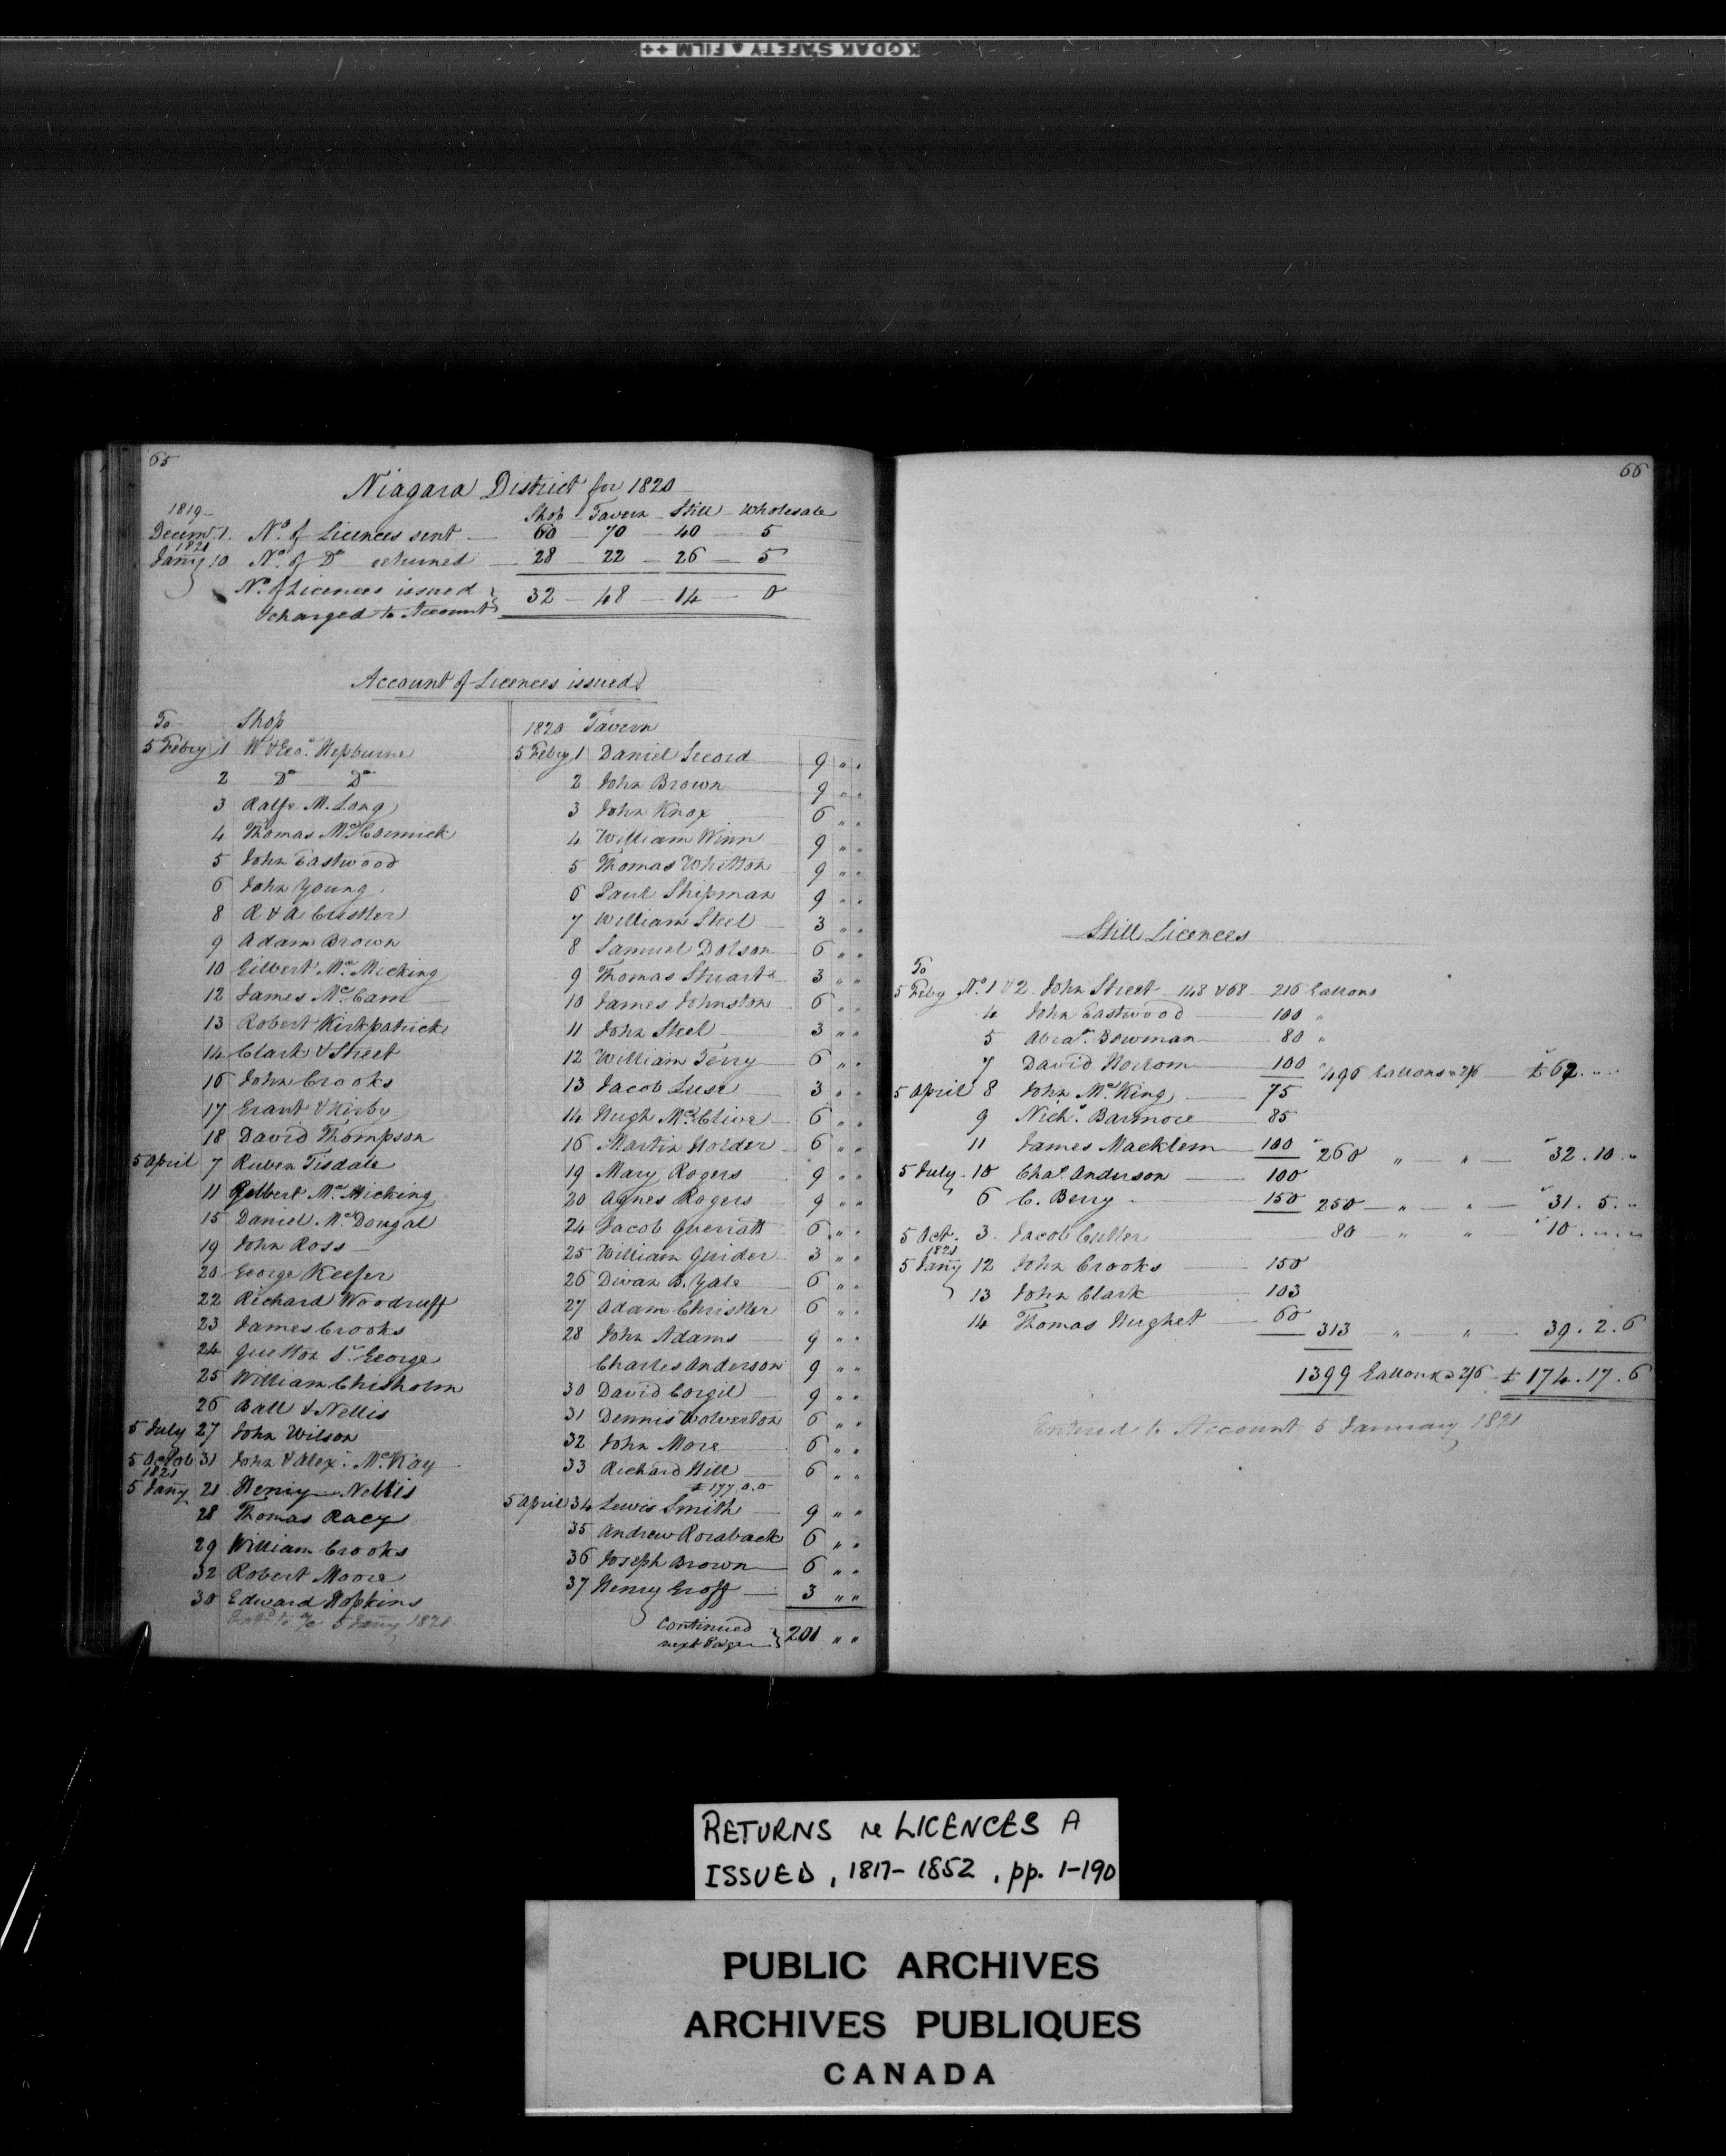 KODAK SAFETY FILM ++
65
Niagara District for 1820
1819
Shop Tavern Still Wholesale
Decemr. 1. No. of Licences sent 60 70 40 5
1821
Jany 10 No. of Do returned 28 22 26 5
No. of Licences issued
& charged to Account 32 48 14 0
Account of Licences issued
To Shop
5 Febry 1 W & Geo. Hepburne
2 Do Do
3 Ralfe M. Long
4 Thomas McCormick
5 John Eastwood
6 John Young
8 R & A Cuttler
9 Adam Brown
10 Gilbert Mc.Micking
12 James Mc.Cam
13 Robert Kirkpatrick
14 Clark & Street
16 John Crooks
17 Grant & Kirby
18 David Thompson
5 April 7 Ruben Tisdale
11 Gilbert Mc.Micking
15 Daniel Mc.Dougal
19 John Ross
20 George Keefer
22 Richard Woodruff
23 James Crooks
24 Quetton St. George
25 William Chisholm
26 Ball & Nellis
5 July 27 John Wilson
5 Octob 31 John & Alexr. McKay
1821
5 Jany 21 Henry Nellis
28 Thomas Racy
29 William Crooks
32 Robert Moore
30 Edward Hopkins
Entd. to a/c 5 Jany 1821
1820 Tavern
5 Febry 1 Daniel Secord 9 " "
2 John Brown 9 " "
3 John Knox 6 " "
4 William Winn 9 " "
5 Thomas Whitton 9 " "
6 Paul Shipman 9 " "
7 William Steel 3 " "
8 Samuel Dolson 6 " "
9 Thomas Stuart 3 " "
10 James Johnston 6 " "
11 John Steel 3 " "
12 William Terry 6 " "
13 Jacob Luse 3 " "
14 Hugh Mc.Clive 6 " "
16 Martin Holder 6 " "
19 Mary Rogers 9 " "
20 Agnes Rogers 9 " "
24 Jacob 6 " "
25 William 3 " "
26 B. Yale 6 " "
27 Adam Chrisller 6 " "
28 John Adams 9 " "
Charles Anderson 9 " "
30 David Corgil 9 " "
31 Dennis Wolverton 6 " "
32 John More 6 " "
33 Richard Hill 6 " "
£177.0.0
5 April 34 Lewis Smith 9 " "
35 Andrew Roraback 6 " "
36 Joseph Brown 6 " "
37 Henry Groff 3 " "
Continued
next Page 201 " "
66
Still Licences
To
5 Feby No. 1 & 2 John Street 148 & 68 216 Gallons
4 John Eastwood 100 "
5 Abram. Bowman 80 "
7 David Horrom 100 496 Gallons @ 2/6 £62. " "
5 April 8 John Mc.King 75
9 Nichs. Barmore 85
11 James Macklem 100 260 " " 32.10. "
5 July 10 Chas. Anderson 100
6 C. Berry 150 250 " " 31.5. "
5 Oct. 3 Jacob Cutler 80 " " 10. " "
1821
5 Jany 12 John Crooks 150
13 John Clark 103
14 Thomas Hughet 60 313 " " 39.2.6
1399 Gallons @ 2/6 £174.17.6
Entered to Account 5 January 1821
RETURNS re LICENCES A
ISSUED, 1817-1852, pp. 1-190
PUBLIC ARCHIVES
ARCHIVES PUBLIQUES
CANADA